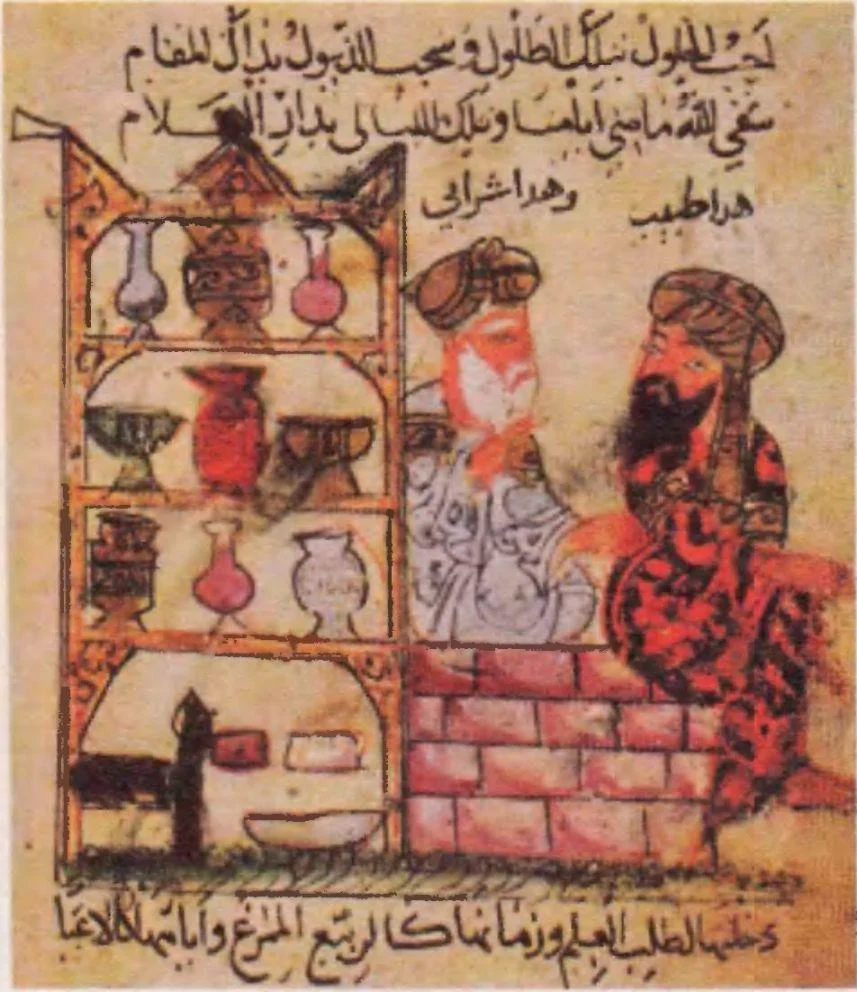 أحب الحلول بتلك الطلول وسحب الذيول بذاك المقام
سقى الله ما مضى أيامنا وتلك الليالي بدار السلام
هدا طبيب وهدا شرابي
لطلب العلم وزمانها كالربيع الممرع وأيامها كالأعيا